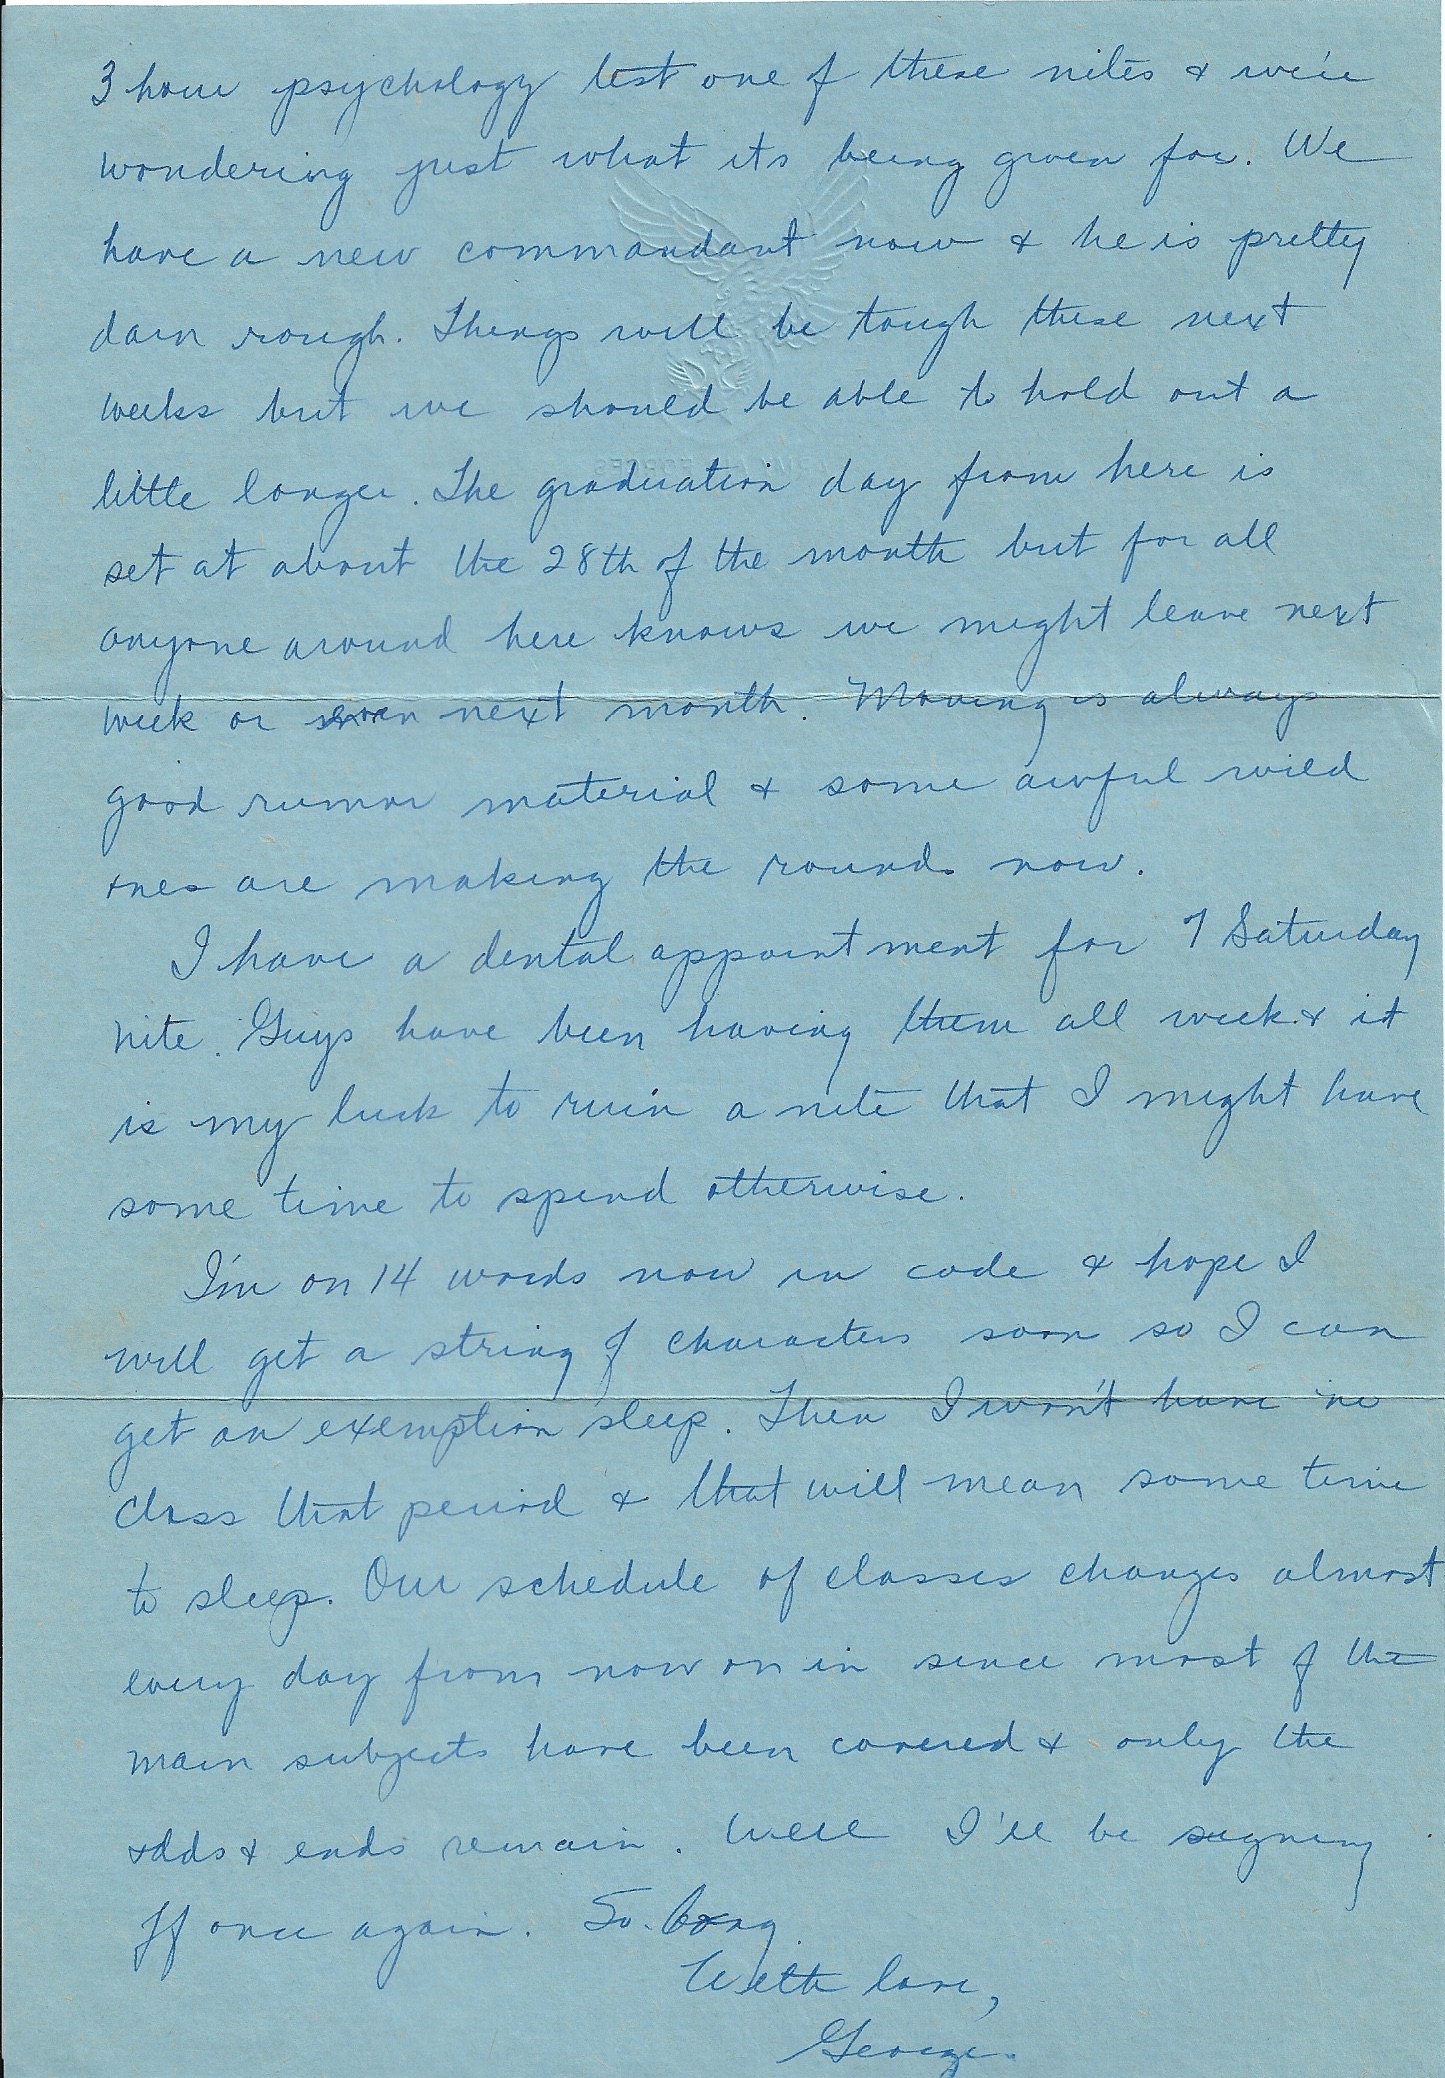 3 hour psychology test one of these nites & we're
wondering just what its being given for. We
have a new commandant now & he is pretty
darn rough. Things will be tough these next
weeks but we should be able to hold out a
little longer. The graduation day from here is
set at about the 28th of the month but for all
anyone around here knows we might leave next
week or even next month. Moving is always
good rumor material & some awful wild
ones are making the rounds now.
I have a dental appointment for 7 Saturday
nite. Guys have been having them all week & it
is my luck to ruin a nite that I might have
some time to spend otherwise.
I'm on 14 words now in code & hope I
will get a string of characters soon so I can
get an exemption sleep. Then I won't have no
class that period & that will mean some time
to sleep. Our schedule of classes changes almost
every day from now on in since most of the
main subjects have been covered & only the
odds & ends remain. Well I'll be signing
off once again. So long
With love,
George.